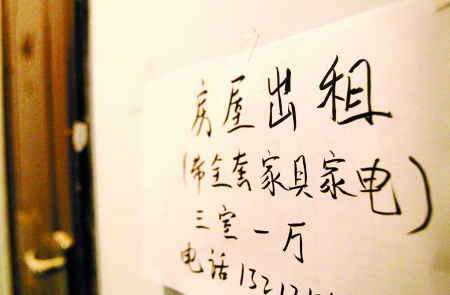 房屋出租
(带全套家具家电)
三室一厅
电话